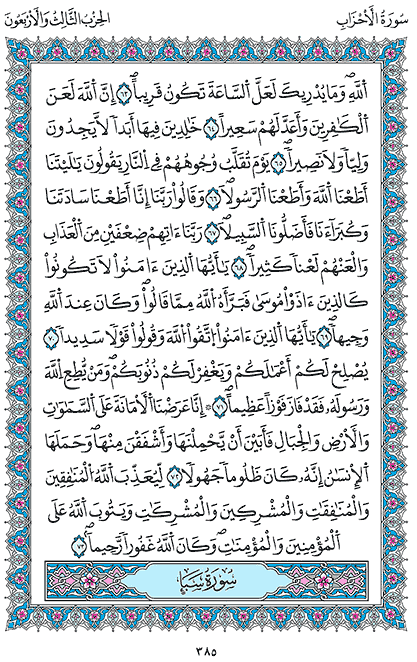 سُورَةُ الأَحْزَابِ
الحِزْبُ الثَّالِثُ وَالأَرْبَعُونَ
اَللَّهِ وَمَا يُدْرِيكَ لَعَلَّ اَلسَّاعَةَ تَكُونُ قَرِيباً ٦٣ إِنَّ اَللَّهَ لَعَنَ
اَلْكَٰفِرِينَ وَأَعَدَّ لَهُمْ سَعِيراً ٦٤ خَٰلِدِينَ فِيهَا أَبَداً لَّا يَجِدُونَ
وَلِيّاً وَلَا نَصِيراً ٦٥ يَوْمَ تُقَلَّبُ وُجُوهُهُمْ فِي اِلنَّارِ يَقُولُونَ يَٰلَيْتَنَا
أَطَعْنَا اَللَّهَ وَأَطَعْنَا اَلرَّسُولَا ٦٦ وَقَالُواْ رَبَّنَا إِنَّا أَطَعْنَا سَادَتَنَا
وَكُبَرَآءَنَا فَأَضَلُّونَا اَلسَّبِيلَا ٦٧ رَبَّنَا ءَاتِهِمْ ضِعْفَيْنِ مِنَ اَلْعَذَابِ
وَالْعَنْهُمْ لَعْناً كَثِيراً ٦٨ يَٰأَيُّهَا اَلذِينَ ءَامَنُواْ لَا تَكُونُواْ
كَالذِينَ ءَاذَوْاْ مُوسَىٰ فَبَرَّأَهُ اُللَّهُ مِمَّا قَالُواْ وَكَانَ عِندَ اَللَّهِ
وَجِيهاً ٦٩ يَٰأَيُّهَا اَلذِينَ ءَامَنُواْ اُتَّقُواْ اُللَّهَ وَقُولُواْ قَوْلاً سَدِيداً ٧٠
يُصْلِحْ لَكُمْ أَعْمَٰلَكُمْ وَيَغْفِرْ لَكُمْ ذُنُوبَكُمْ وَمَنْ يُّطِعِ اِللَّهَ
وَرَسُولَهُۥ فَقَدْ فَازَ فَوْزاً عَظِيماً ٧١ ۞ إِنَّا عَرَضْنَا اَلْأَمَانَةَ عَلَى اَلسَّمَٰوَٰتِ
وَالْأَرْضِ وَالْجِبَالِ فَأَبَيْنَ أَنْ يَّحْمِلْنَهَا وَأَشْفَقْنَ مِنْهَا وَحَمَلَهَا
اَلْإِنسَٰنُ إِنَّهُۥ كَانَ ظَلُوماً جَهُولاً ٧٢ لِّيُعَذِّبَ اَللَّهُ اُلْمُنَٰفِقِينَ
وَالْمُنَٰفِقَٰتِ وَالْمُشْرِكِينَ وَالْمُشْرِكَٰتِ وَيَتُوبَ اَللَّهُ عَلَى
اَلْمُؤْمِنِينَ وَالْمُؤْمِنَٰتِ وَكَانَ اَللَّهُ غَفُوراً رَّحِيماً ٧٣
سُورَةُ سَبَإٍ
٣٨٥